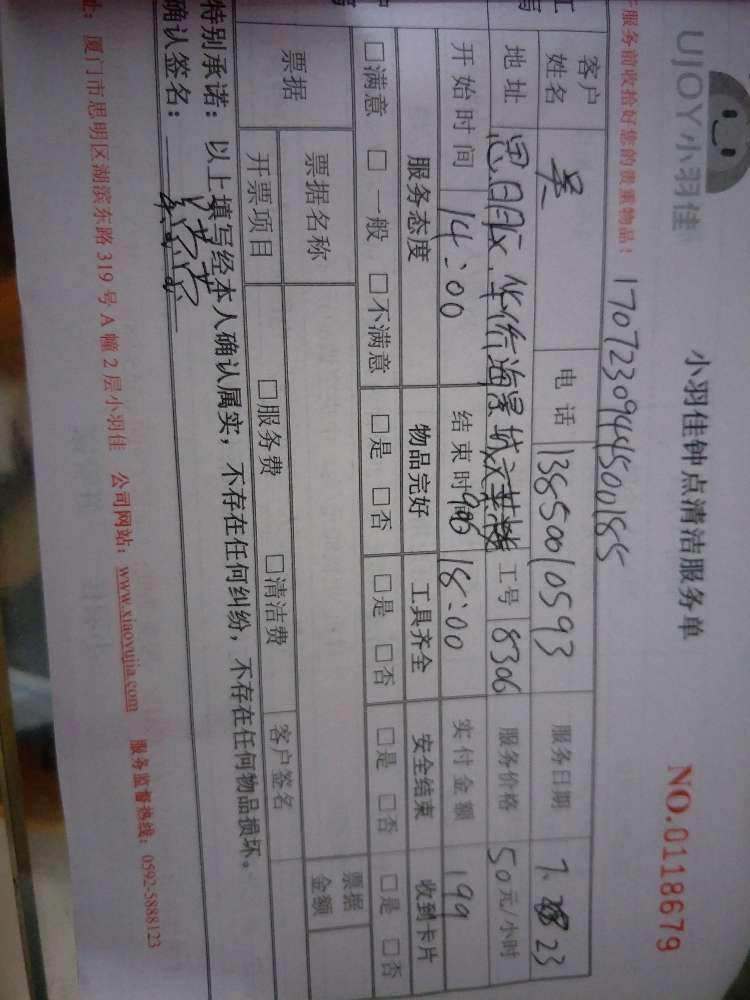 UJOY小羽佳
小羽佳钟点清洁服务单
NO.0118679
服务前收拾好您的贵重物品！
1707230944500185
客户姓名 吴 电话 13850010593 服务日期 7. 23
地址 思明区.华侨海景城 工号 8306 服务价格 50元/小时
开始时间 14:00 结束时 18:00 实付金额 199
服务态度 物品完好 工具齐全 安全结束 收到卡片
□满意 □一般 □不满意 □是 □否 □是 □否 □是 □否 □是 □否
票据 票据名称 票据金额
开票项目 □服务费 □清洁费 客户签名
特别承诺：以上填写经本人确认属实，不存在任何纠纷，不存在任何物品损坏。
确认签名：
址：厦门市思明区湖滨东路319号A幢2层小羽佳 公司网站：www.xiaoyujia.com 服务监督热线：0592-5888123